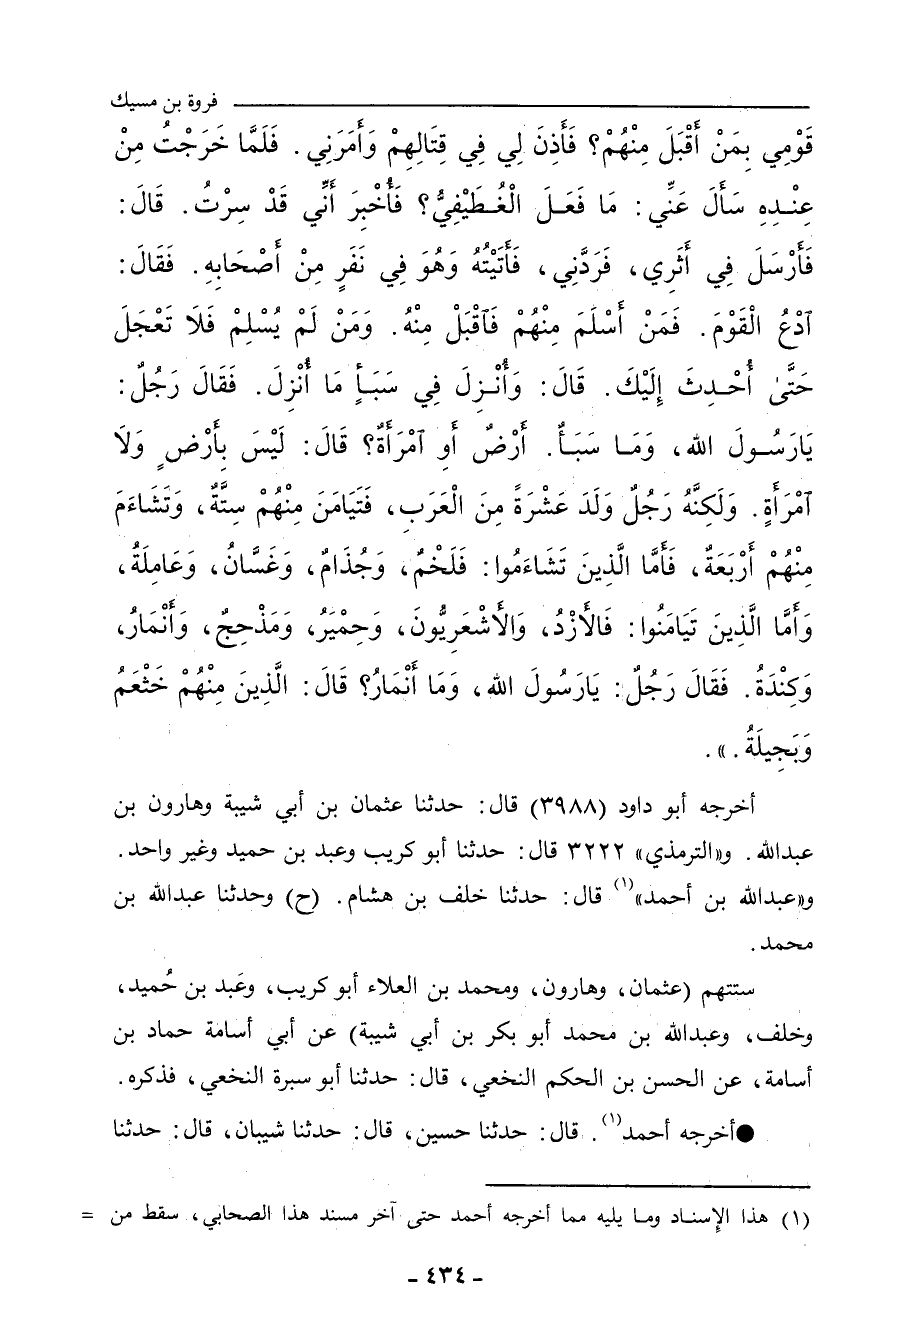 فروة بن مسيك
قَوْمِي بِمَنْ أَقْبَلَ مِنْهُمْ؟ فَأَذِنَ لِي فِي قِتَالِهِمْ وَأَمَرَنِي. فَلَمَّا خَرَجْتُ مِنْ
عِنْدِهِ سَأَلَ عَنِّي: مَا فَعَلَ الْغُطَيْفِيُّ؟ فَأُخْبِرَ أَنِّي قَدْ سِرْتُ. قَالَ:
فَأَرْسَلَ فِي أَثَرِي، فَرَدَّنِي، فَأَتَيْتُهُ وَهُوَ فِي نَفَرٍ مِنْ أَصْحَابِهِ. فَقَالَ:
آدْعُ الْقَوْمَ. فَمَنْ أَسْلَمَ مِنْهُمْ فَآقْبَلْ مِنْهُ. وَمَنْ لَمْ يُسْلِمْ فَلَا تَعْجَلَ
حَتَّى أُحْدِثَ إِلَيْكَ. قَالَ: وَأُنْزِلَ فِي سَبَأٍ مَا أُنْزِلَ. فَقَالَ رَجُلٌ:
يَارَسُولَ الله، وَمَا سَبَأٌ. أَرْضٌ أَو آمْرَأَةٌ؟ قَالَ: لَيْسَ بِأَرْضٍ وَلَا
آمْرَأَةٍ. وَلَكِنَّهُ رَجُلٌ وَلَدَ عَشْرَةً مِنَ الْعَرَبِ، فَتَيَامَنَ مِنْهُمْ سِتَّةٌ، وَتَشَاءَمَ
مِنْهُمْ أَرْبَعَةٌ، فَأَمَّا الَّذِينَ تَشَاءَمُوا: فَلَخْمٌ، وَجُذَامٌ، وَغَسَّانُ، وَعَامِلَةُ،
وَأَمَّا الَّذِينَ تَيَامَنُوا: فَالأَزْدُ، وَالأَشْعَرِيُّونَ، وَحِمْيَرُ، وَمَذْحِجٌ، وَأَنْمَارُ،
وَكِنْدَةُ. فَقَالَ رَجُلٌ: يَارَسُولَ الله، وَمَا أَنْمَارُ؟ قَالَ: الَّذِينَ مِنْهُمْ خَثْعَمُ
وَبَجِيلَةُ.».
أخرجه أبو داود (٣٩٨٨) قال: حدثنا عثمان بن أبي شيبة وهارون بن
عبدالله. و«الترمذي» ٣٢٢٢ قال: حدثنا أبو كريب وعبد بن حميد وغير واحد.
و«عبدالله بن أحمد»(١) قال: حدثنا خلف بن هشام. (ح) وحدثنا عبدالله بن
محمد.
ستتهم (عثمان، وهارون، ومحمد بن العلاء أبو كريب، وعَبد بن حُميد،
وخلف، وعبدالله بن محمد أبو بكر بن أبي شيبة) عن أبي أسامة حماد بن
أسامة، عن الحسن بن الحكم النخعي، قال: حدثنا أبو سبرة النخعي، فذكره.
●أخرجه أحمد(١). قال: حدثنا حسين، قال: حدثنا شيبان، قال: حدثنا
(١) هذا الإسناد وما يليه مما أخرجه أحمد حتى آخر مسند هذا الصحابي، سقط من =
- ٤٣٤ -